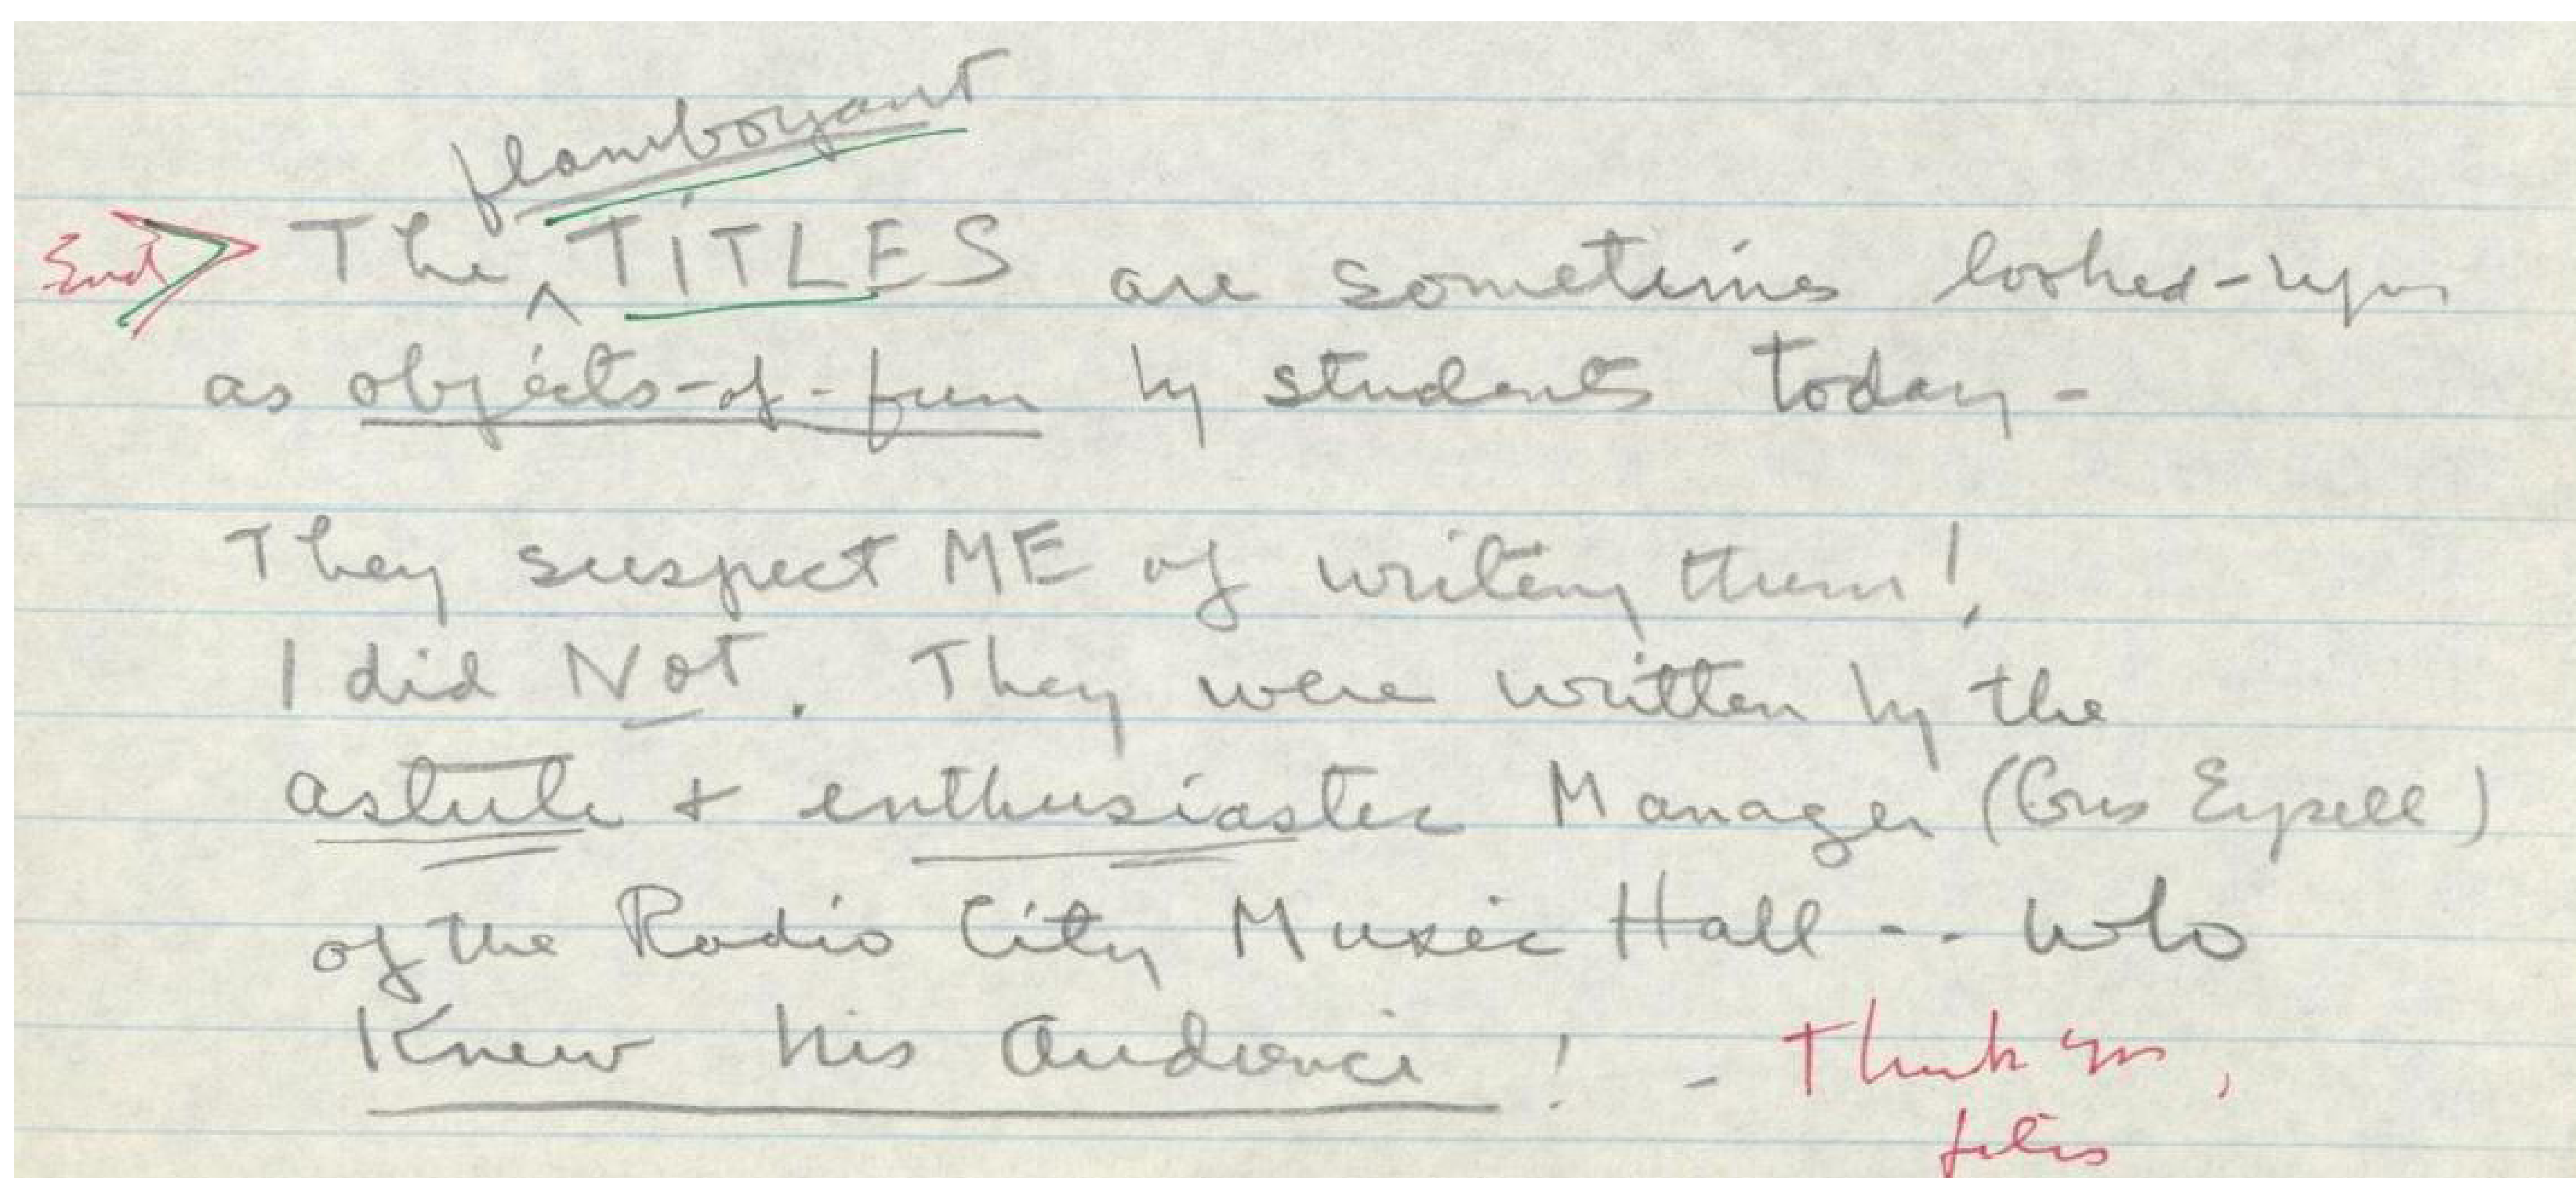 flamboyant
End The ^ TITLES are sometimes looked-upon
as objects-of-fun by students today -
They suspect ME of writing them!
I did Not. They were written by the
astute + enthusiastic Manager (Gus Eyssell)
of the Radio City Music Hall -- who
Knew his Audience ! - Thank you,